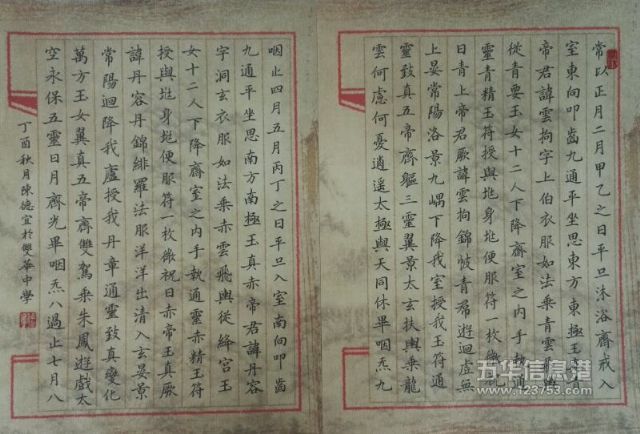 常以正月二月甲乙之日平旦沐浴齋戒入
室東向叩齒九通平坐思東方東極玉
帝君諱雲拘字上伯衣服如法乘青雲
從青要玉女十二人下降齋室之內手
靈青精玉符授與𡉏身𡉏便服符一枚微
日青上帝君厥諱雲拘錦帔青希遊迴虛無
上晏常陽洛景九嵎下降我室授我玉符通
靈致真五帝齊軀三靈翼景太玄扶輿乘龍
雲何慮何憂逍遙太極與天同休畢咽炁九
咽止四月五月丙丁之日平旦入室南向叩齒
九通平坐思南方南極玉真赤帝君諱丹容
字洞玄衣服如法乘赤雲飛輿從絳宮玉
女十二人下降齋室之內手執通靈赤精玉符
授與𡉏身𡉏便服符一枚微祝日赤帝玉真厥
諱丹容丹錦緋羅法服洋洋出清入玄晏景
常陽迴降我廬授我丹章通靈致真變化
萬方玉女翼真五帝齊雙駕乘朱鳳遊戲太
空永保五靈日月齊光畢咽炁八過止七月八
丁酉秋月陳德宜於雙華中學
五华信息港
www.123753.com